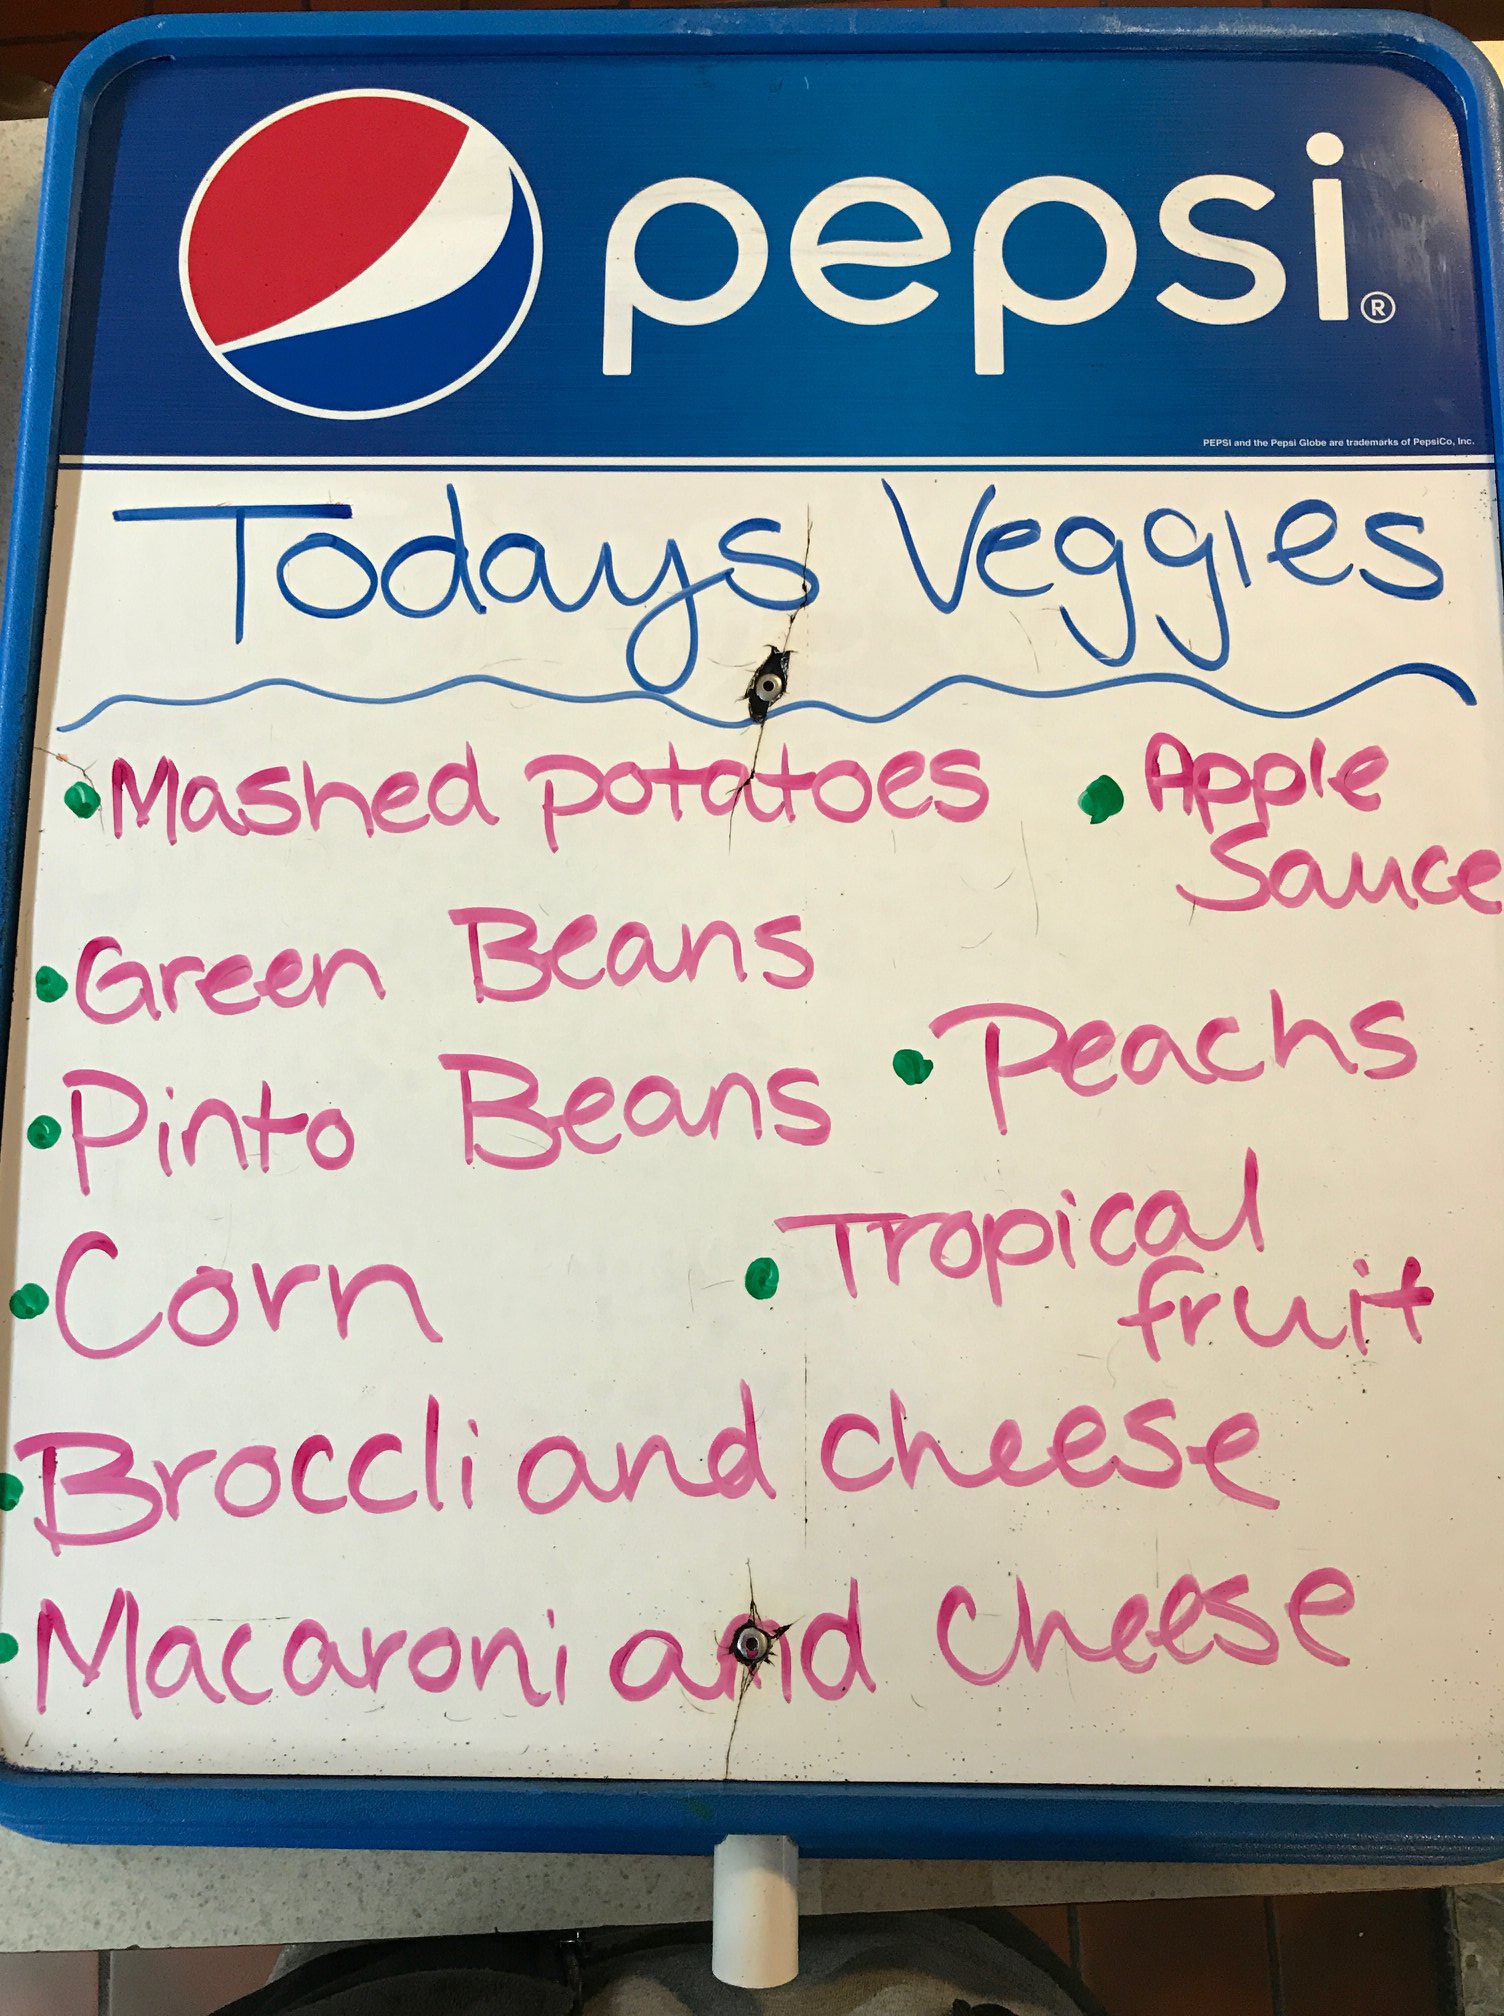 pepsi®
PEPSI and the Pepsi Globe are trademarks of PepsiCo, Inc.
Todays Veggies
• Mashed potatoes
• Green Beans
• Pinto Beans
• Corn
• Broccli and cheese
• Macaroni and Cheese
• Apple
Sauce
• Peachs
• Tropical
fruit